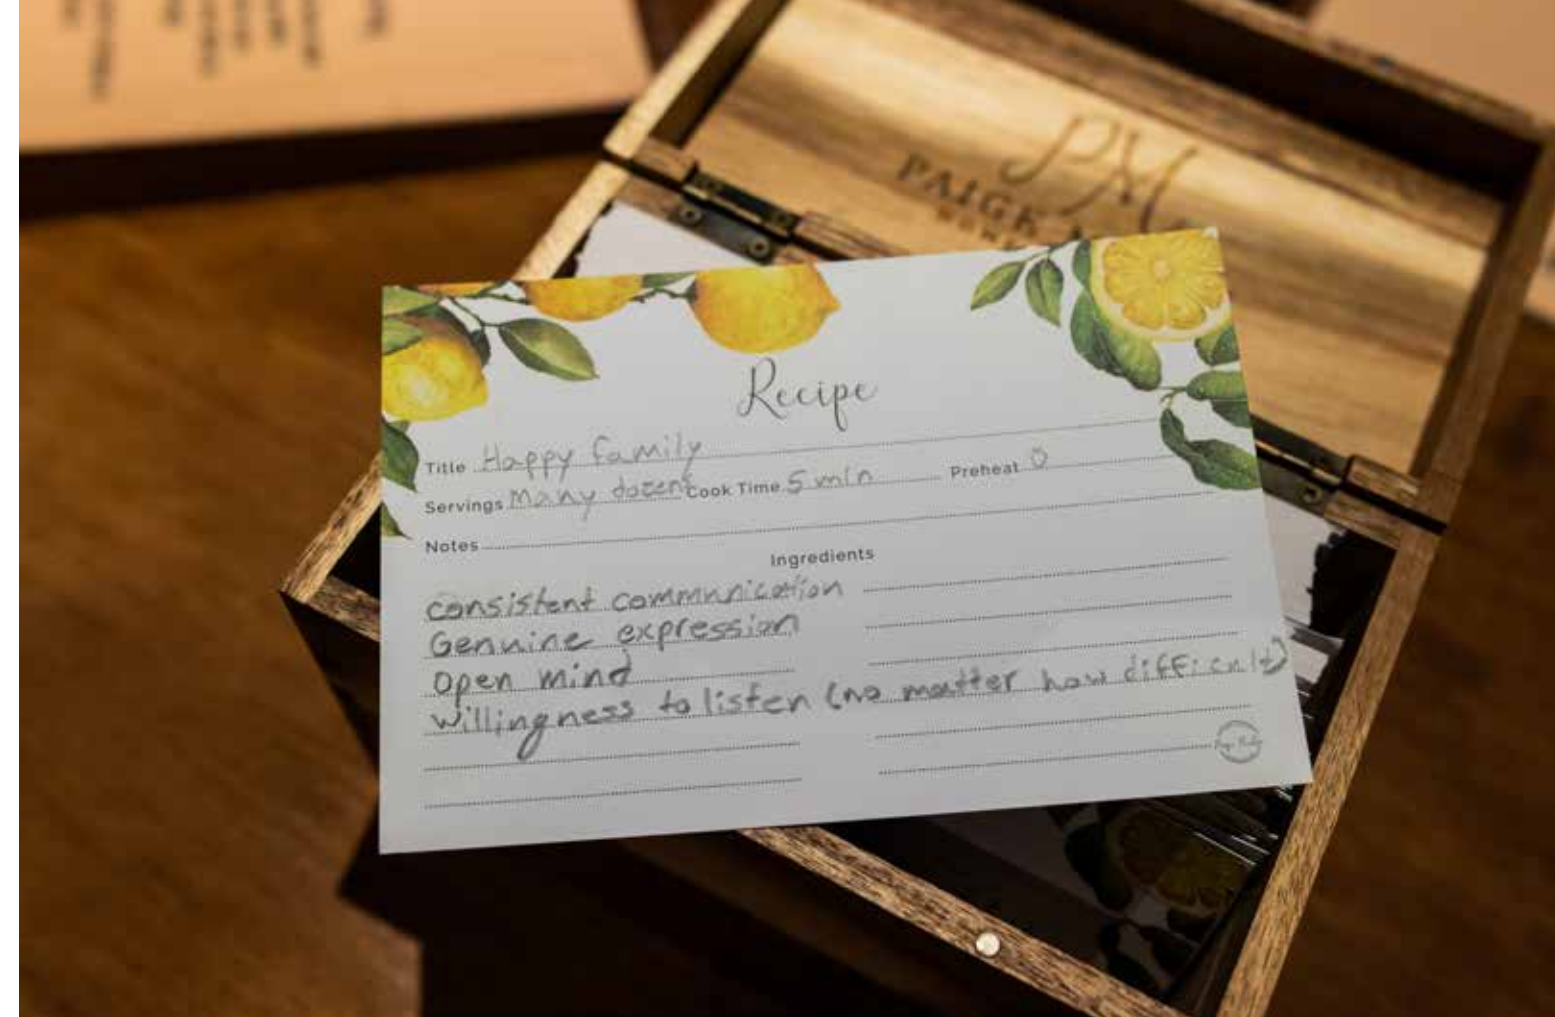 PM
PAIGE
Recipe
Title Happy family
Servings Many dozens Cook Time 5 min Preheat 0
Notes
Ingredients
consistent communication
Genuine expression
open mind
willingness to listen (no matter how difficult)